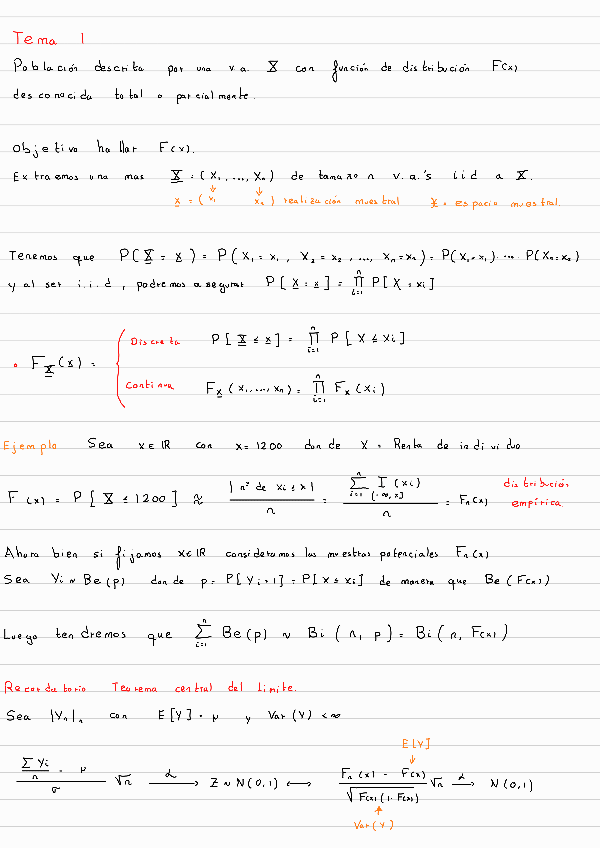 Tema 1
Población descrita por una v.a. X con función de distribución F(x)
desconocida total o parcialmente.
Objetivo hallar F(x).
Extraemos una mas X = (X₁, ..., Xₙ) de tamaño n v.a.'s iid a X.
x = (x₁ xₙ) realización muestral χ = espacio muestral.
Tenemos que P(X = x) = P(X₁ = x₁, X₂ = x₂, ..., Xₙ = xₙ) = P(X₁ = x₁) · ... · P(Xₙ = xₙ)
y al ser i.i.d, podremos asegurar P[X = x] = ∏ᵢ₌₁ⁿ P[X = xi]
Discreta P[X ≤ x] = ∏ᵢ₌₁ⁿ P[X ≤ xi]
• F_X(x) =
Continua F_X(x₁, ..., xₙ) = ∏ᵢ₌₁ⁿ F_X(xi)
Ejemplo Sea x ∈ IR con x = 1200 donde X = Renta de individuo
F(x) = P[X ≤ 1200] ≈ |nº de xi ≤ x| / n = ∑ᵢ₌₁ⁿ I(-∞, x] (xi) / n = Fn(x) distribución empírica.
Ahora bien si fijamos x ∈ IR consideramos las muestras potenciales Fn(x)
Sea Yi ~ Be(p) donde p = P[Yi = 1] = P[X ≤ xi] de manera que Be(F(x))
Luego tendremos que ∑ᵢ₌₁ⁿ Be(p) ~ Bi(n, p) = Bi(n, F(x))
Recordatorio Teorema central del limite.
Sea |Yn|n con E[Y] = μ y Var(Y) < ∞
E[Y]
(∑Yi / n - μ) / σ √n →ᴸ Z ~ N(0,1) ⟷ (Fn(x) - F(x)) / √(F(x)(1 - F(x))) √n →ᴸ N(0,1)
Var(Y)